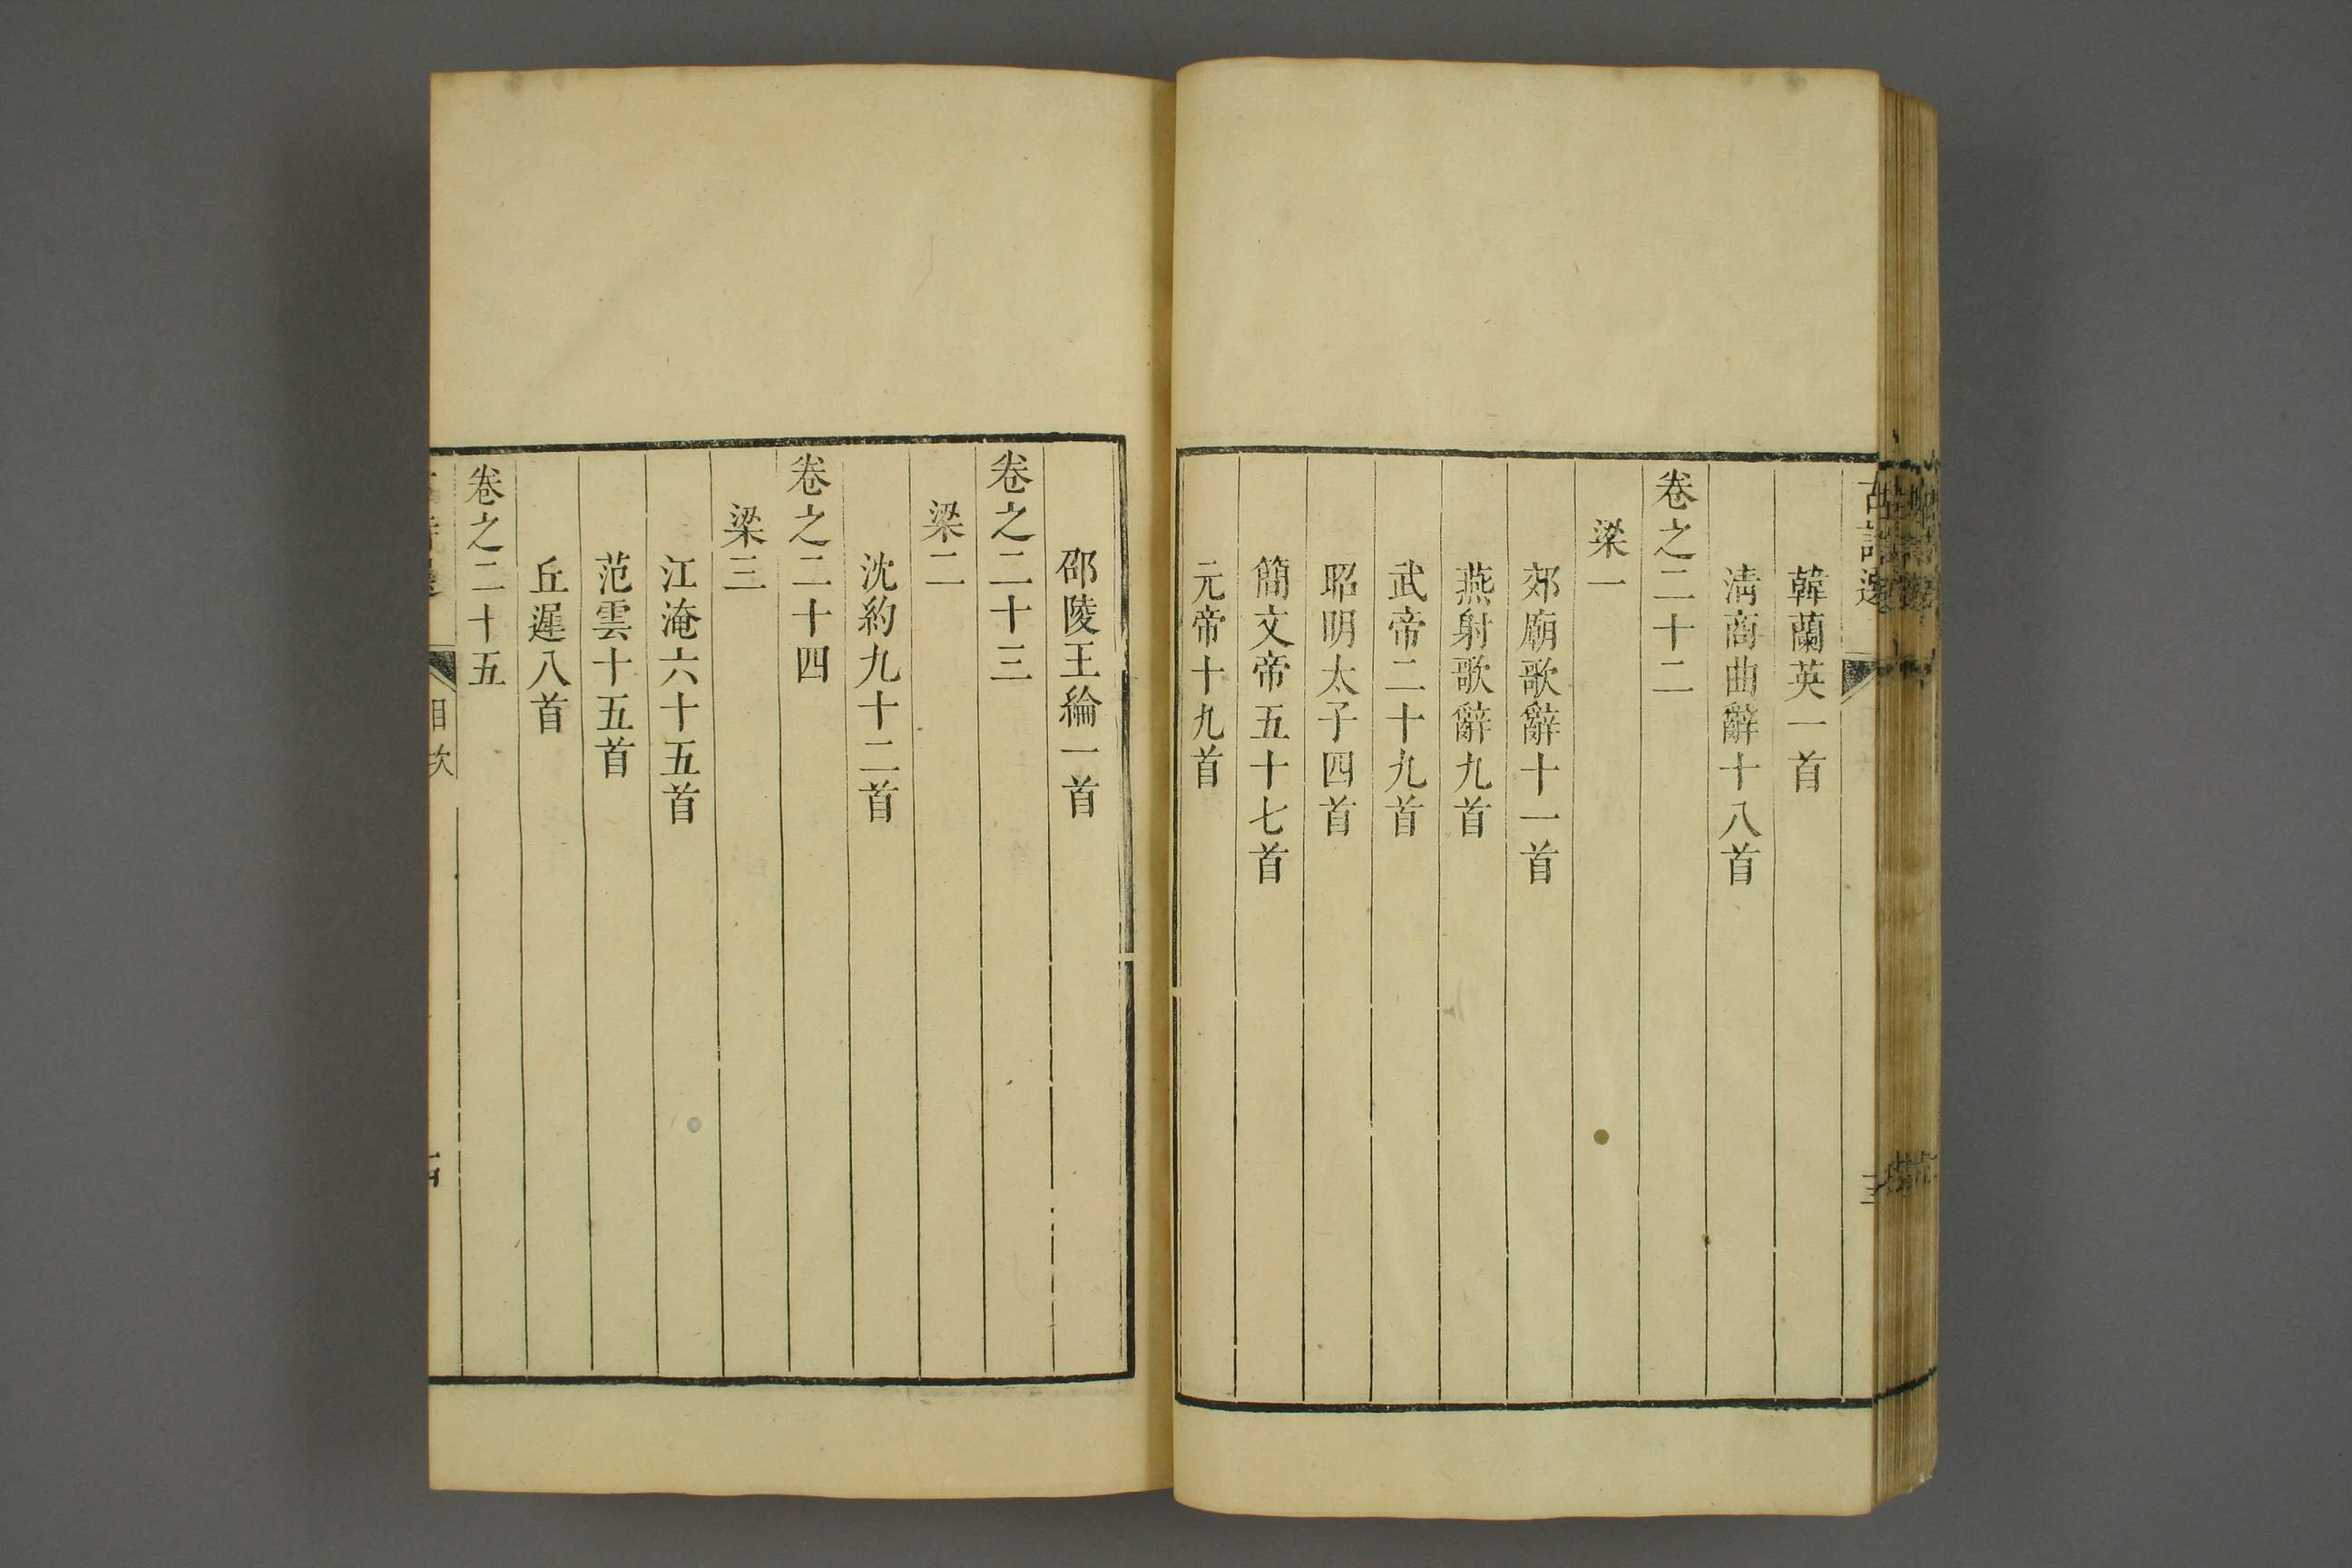 古詩選
韓蘭英一首
清商曲辭十八首
卷之二十二
梁一
郊廟歌辭十一首
燕射歌辭九首
武帝二十九首
昭明太子四首
簡文帝五十七首
元帝十九首
邵陵王綸一首
卷之二十三
梁二
沈約九十二首
卷之二十四
梁三
江淹六十五首
范雲十五首
丘遲八首
卷之二十五
目次